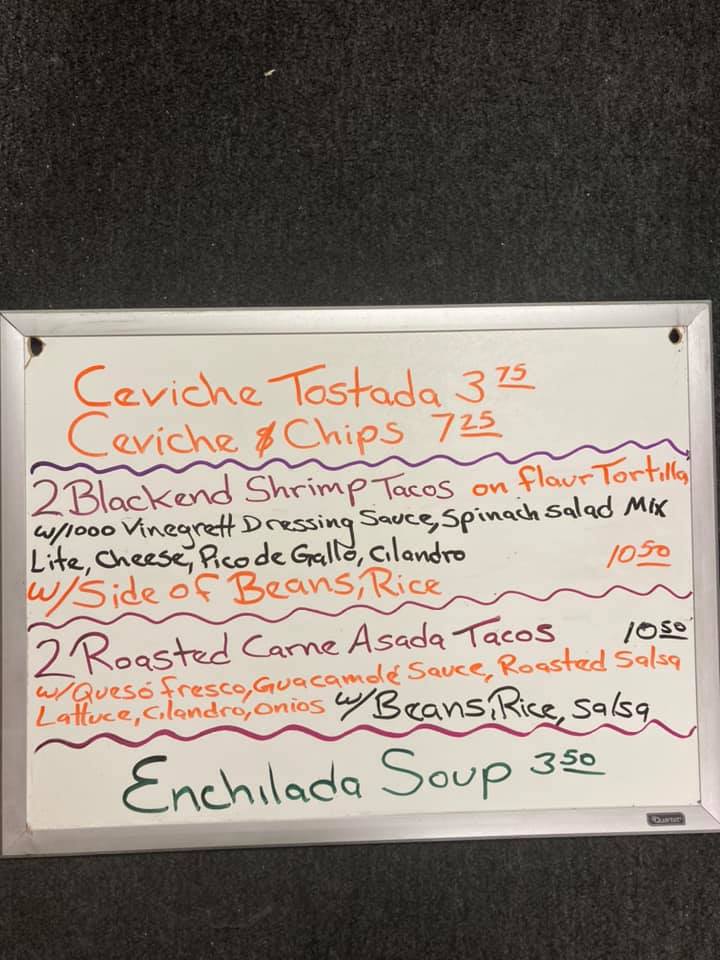 Ceviche Tostada 3 75
Ceviche & Chips 7 25
2 Blackend Shrimp Tacos on flaur Tortilla
w/1000 Vinegrett Dressing Sauce, Spinach salad Mix
Lite, Cheese, Pico de Gallo, Cilandro 10 50
w/Side of Beans, Rice
2 Roasted Carne Asada Tacos 10 50
w/Quesó fresco, Guacamolé Sauce, Roasted Salsa
Lattuce, Cilandro, onios w/Beans, Rice, Salsa
Enchilada Soup 3 50
Quartet